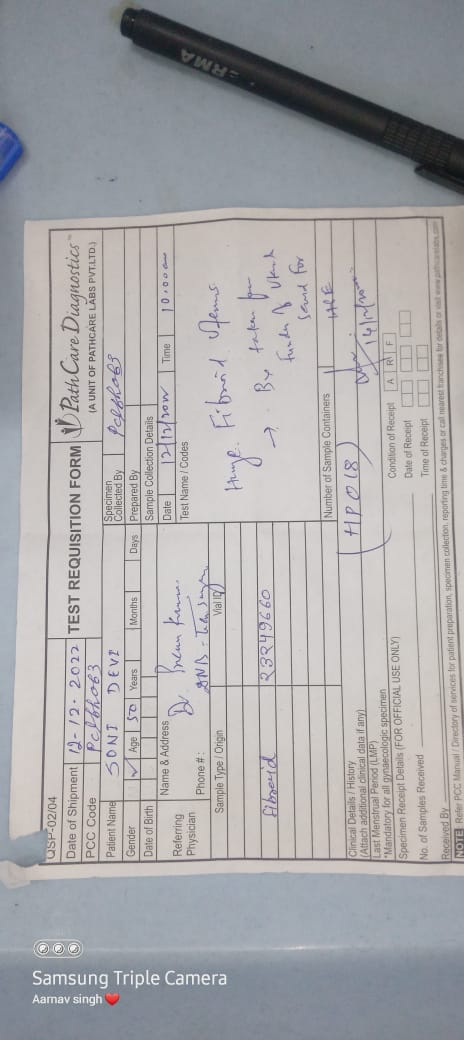 PERMA
QSP-02/04
Date of Shipment 12-12-2022 TEST REQUISITION FORM PathCare Diagnostics™
PCC Code (A UNIT OF PATHCARE LABS PVT.LTD.)
Patient Name SONI DEVI Specimen Collected By
Gender Age 50 Years Months Days Prepared By
Date of Birth Sample Collection Details
Name & Address Date 12/12/2022 Time 10:00am
Referring Physician Dr Test Name / Codes
Phone # :
Huge Fibroid Uterus
Sample Type / Origin Vial ID
→ Bx taken from
fundus of
send for
HPE
fibroid 23249660
Number of Sample Containers
Clinical Details / History (HP018)
(Attach additional clinical data if any)
Last Menstrual Period (LMP)
*Mandatory for all gynaecologic specimen
Specimen Receipt Details (FOR OFFICIAL USE ONLY) Condition of Receipt A R F
Date of Receipt
No. of Samples Received Time of Receipt
Received By
NOTE Refer PCC Manual / Directory of services for patient preparation, specimen collection, reporting time & charges or call nearest franchisee for details or visit www.pathcarelabs.com
Samsung Triple Camera
Aarnav singh ❤